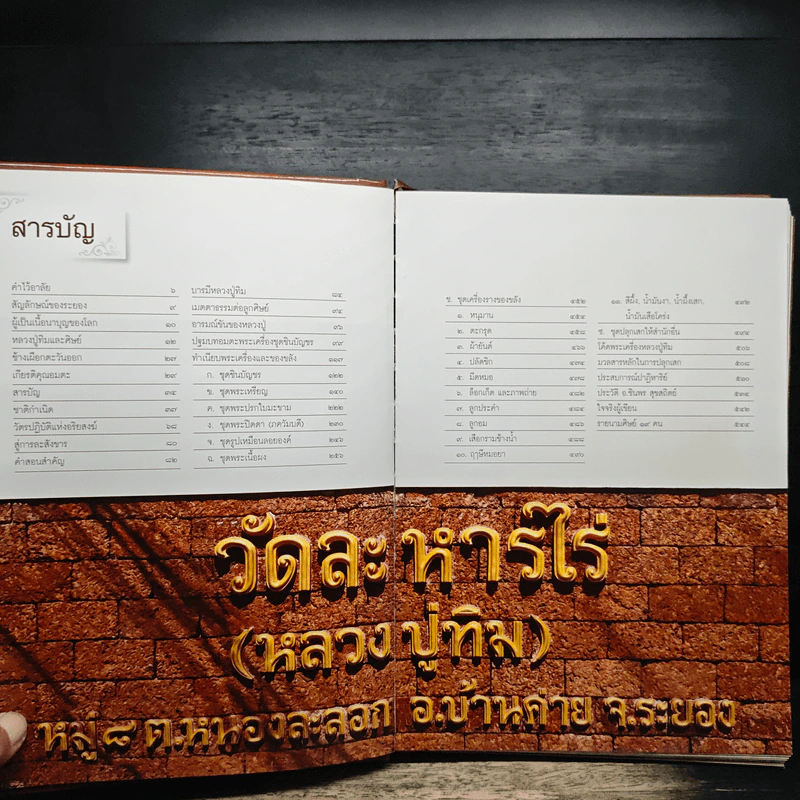 สารบัญ
คำไว้อาลัย ๖
สัญลักษณ์ของระยอง ๙
ผู้เป็นเนื้อนาบุญของโลก ๑๐
หลวงปู่ทิมและศิษย์ ๑๒
ช้างเผือกตะวันออก ๒๓
เกียรติคุณอมตะ ๒๙
สารบัญ ๓๔
ชาติกำเนิด ๓๗
วัตรปฏิบัติแห่งอริยสงฆ์ ๖๘
สู่การละสังขาร ๘๐
คำสอนสำคัญ ๘๒
บารมีหลวงปู่ทิม ๘๔
เมตตาธรรมต่อลูกศิษย์ ๙๔
อารมณ์ขันของหลวงปู่ ๙๖
ปฐมบทอมตะพระเครื่องชุดชินบัญชร ๙๙
ทำเนียบพระเครื่องและของขลัง ๑๑๗
ก. ชุดชินบัญชร ๑๒๒
ข. ชุดพระเหรียญ ๑๔๐
ค. ชุดพระปรกใบมะขาม ๒๒๒
ง. ชุดพระปิดตา (ภควัมบดี) ๒๓๐
จ. ชุดรูปเหมือนลอยองค์ ๒๔๖
ฉ. ชุดพระเนื้อผง ๒๕๖
ช. ชุดเครื่องรางของขลัง ๔๕๒
๑. หนุมาน ๔๕๔
๒. ตะกรุด ๔๕๘
๓. ผ้ายันต์ ๔๖๖
๔. ปลัดขิก ๔๗๔
๕. มีดหมอ
๖. ล็อกเก็ต และภาพถ่าย ๔๘๒
๗. ลูกประคำ ๔๘๔
๘. ลูกอม ๔๘๖
๙. เสือกรามช้างน้ำ ๔๘๘
๑๐. ฤๅษีหมอยา ๔๙๐
๑๑. สีผึ้ง, น้ำมันงา, น้ำผึ้งเสก, ๔๙๒
น้ำมันเสือโคร่ง
ซ. ชุดปลุกเสกให้สำนักอื่น ๔๙๔
โค้ดพระเครื่องหลวงปู่ทิม ๕๐๖
มวลสารหลักในการปลุกเสก ๕๐๘
ประสบการณ์ปาฏิหาริย์ ๕๑๐
ประวัติ อ.ชินพร สุขสถิตย์ ๕๓๔
ใจจริงผู้เขียน ๕๔๒
รายนามศิษย์ ๑๙ คน ๕๔๔
วัดละหารไร่
(หลวงปู่ทิม)
หมู่๘ ต.หนองละลอก อ.บ้านค่าย จ.ระยอง